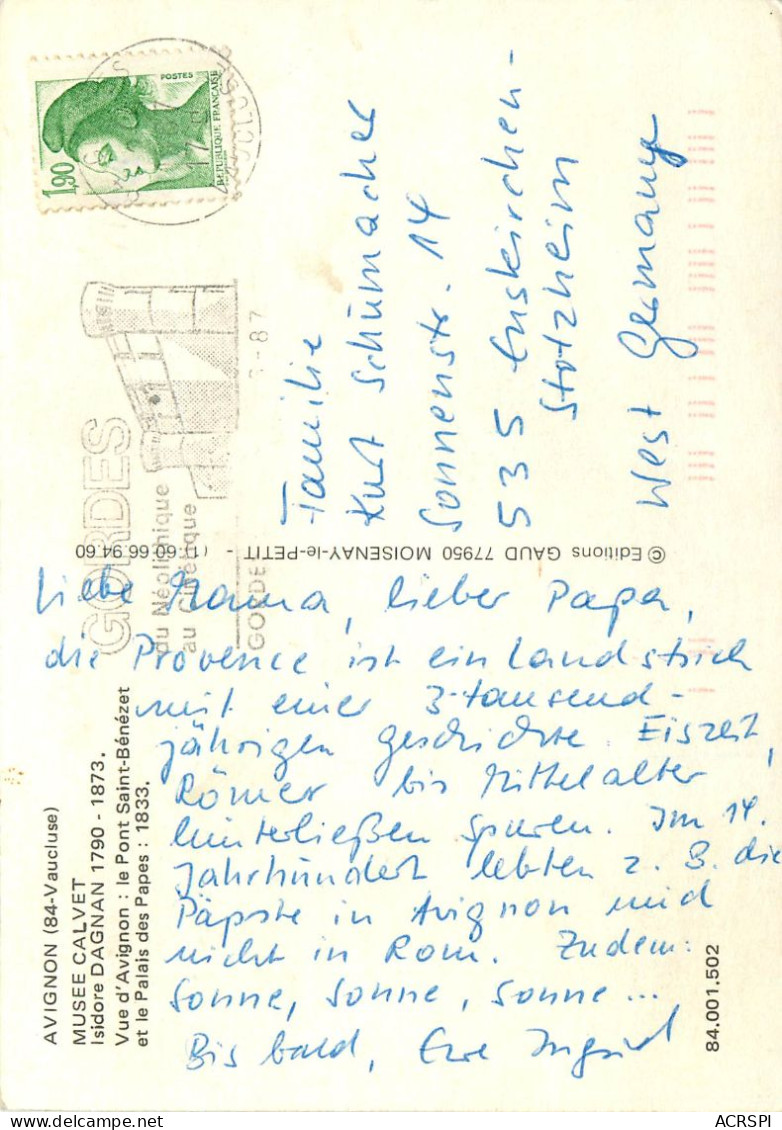 POSTES
REPUBLIQUE FRANÇAISE
1,90
VAUCLUSE
17
8-87
GORDES
du Néolithique
au
GORDE
Familie
Kurt Schumacher
Sonnenstr. 14
535 Euskirchen-
Stotzheim
West Germany
© Editions GAUD 77950 MOISENAY-le-PETIT - (1) 60.66.94.60
Liebe Mama, lieber Papa,
die Provence ist ein Landstrich
mit einer 3-tausend-
jährigen Geschichte. Eiszeit,
Römer bis Mittelalter
hinterließen Spuren. Im 14.
Jahrhundert lebten z. B. die
Päpste in Avignon und
nicht in Rom. Zudem:
Sonne, Sonne, Sonne...
Bis bald, Eure Ingrid
AVIGNON (84-Vaucluse)
MUSEE CALVET
Isidore DAGNAN 1790 - 1873.
Vue d'Avignon : le Pont Saint-Bénézet
et le Palais des Papes : 1833.
84.001.502
ACRSPI